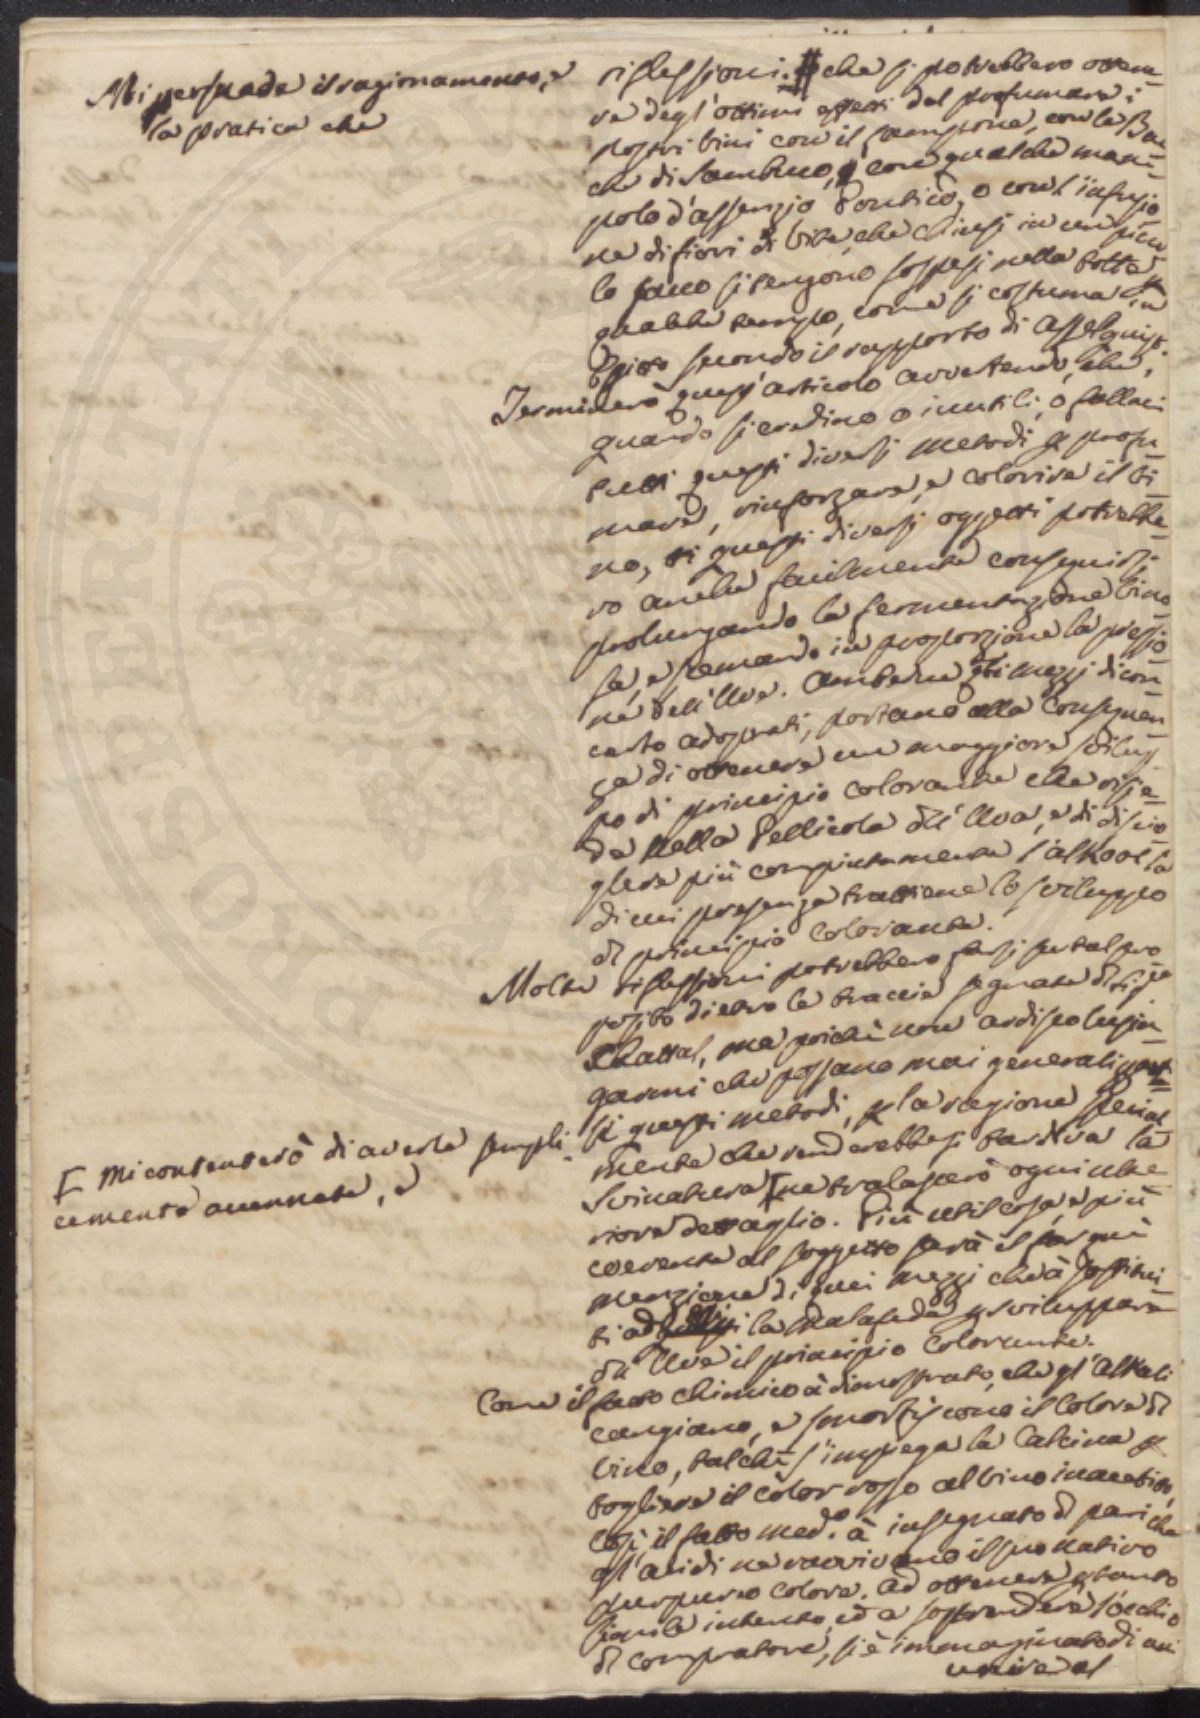 Mi persuade il ragionamento, e
la pratica che
riflessioni. # che si potrebbero ottene-
re degl'ottimi effetti dal profumare i
nostri vini con il lampione, con le Bac-
che di Sambuco, e con qualche mani-
polo d'assenzio Pontico, o coll'infusio-
ne di fiori di vite, che chiusi in un picco-
lo sacco si tengono sospesi nella botte p
qualche tempo, come si costuma in
Egitto secondo il rapporto di Asselquist.
Terminerò quest'articolo avvertendo, che,
quando si credino o inutili, o fallaci
tutti questi diversi metodi p profu-
mare, rinforzare, e colorire il vi-
no, questi diversi oggetti potrebbe-
ro anche facilmente conseguirsi
prolungando la fermentazione vino-
sa, e scemando in proporzione la pressio-
ne dell'Uve. Ambedue qti mezzi di con-
certo adoprati, portano alla conseguen-
za di ottenere un maggiore svilup-
po di principio colorante che risie-
de nella Pellicola dell'Uva, e di discio-
gliere più compiutamente l'alkool la
di cui presenza trattiene lo sviluppo
di principio colorante.
Molte riflessioni potrebbero farsi su tal pro-
posito dietro le traccie segnate di Sige
Chattal, ma poichè non ardisco lusin-
garmi che possano mai generalizzar-
si questi metodi, p la ragione special-
mente che renderebbesi tardiva la
Svinatura [ ne tralascerò ogni ulte-
riore dettaglio. Più util cosa, e più
coerente al soggetto sarà il far quì
menzione di quei mezzi che à sostitui-
ti la Malafede p sviluppare
dll' Uve il principio Colorante.
[ mi contenterò di averle sempli-
cemente accennate, e
Come il fatto chimico à dimostrato, che gl'Alkali
cangiano, e smortiscono il Colore dl
vino, talchè s'impiega la Calcina p
togliere il color rosso al vino inacetito,
così il fatto med.o à insegnato dl pari che
gl'acidi ne ravvivano il suo nativo
purpureo colore. Ad ottenere p tanto
simile intento, ed a sorprendere l'occhio
dl compratore, si è immaginato di un-
unire al